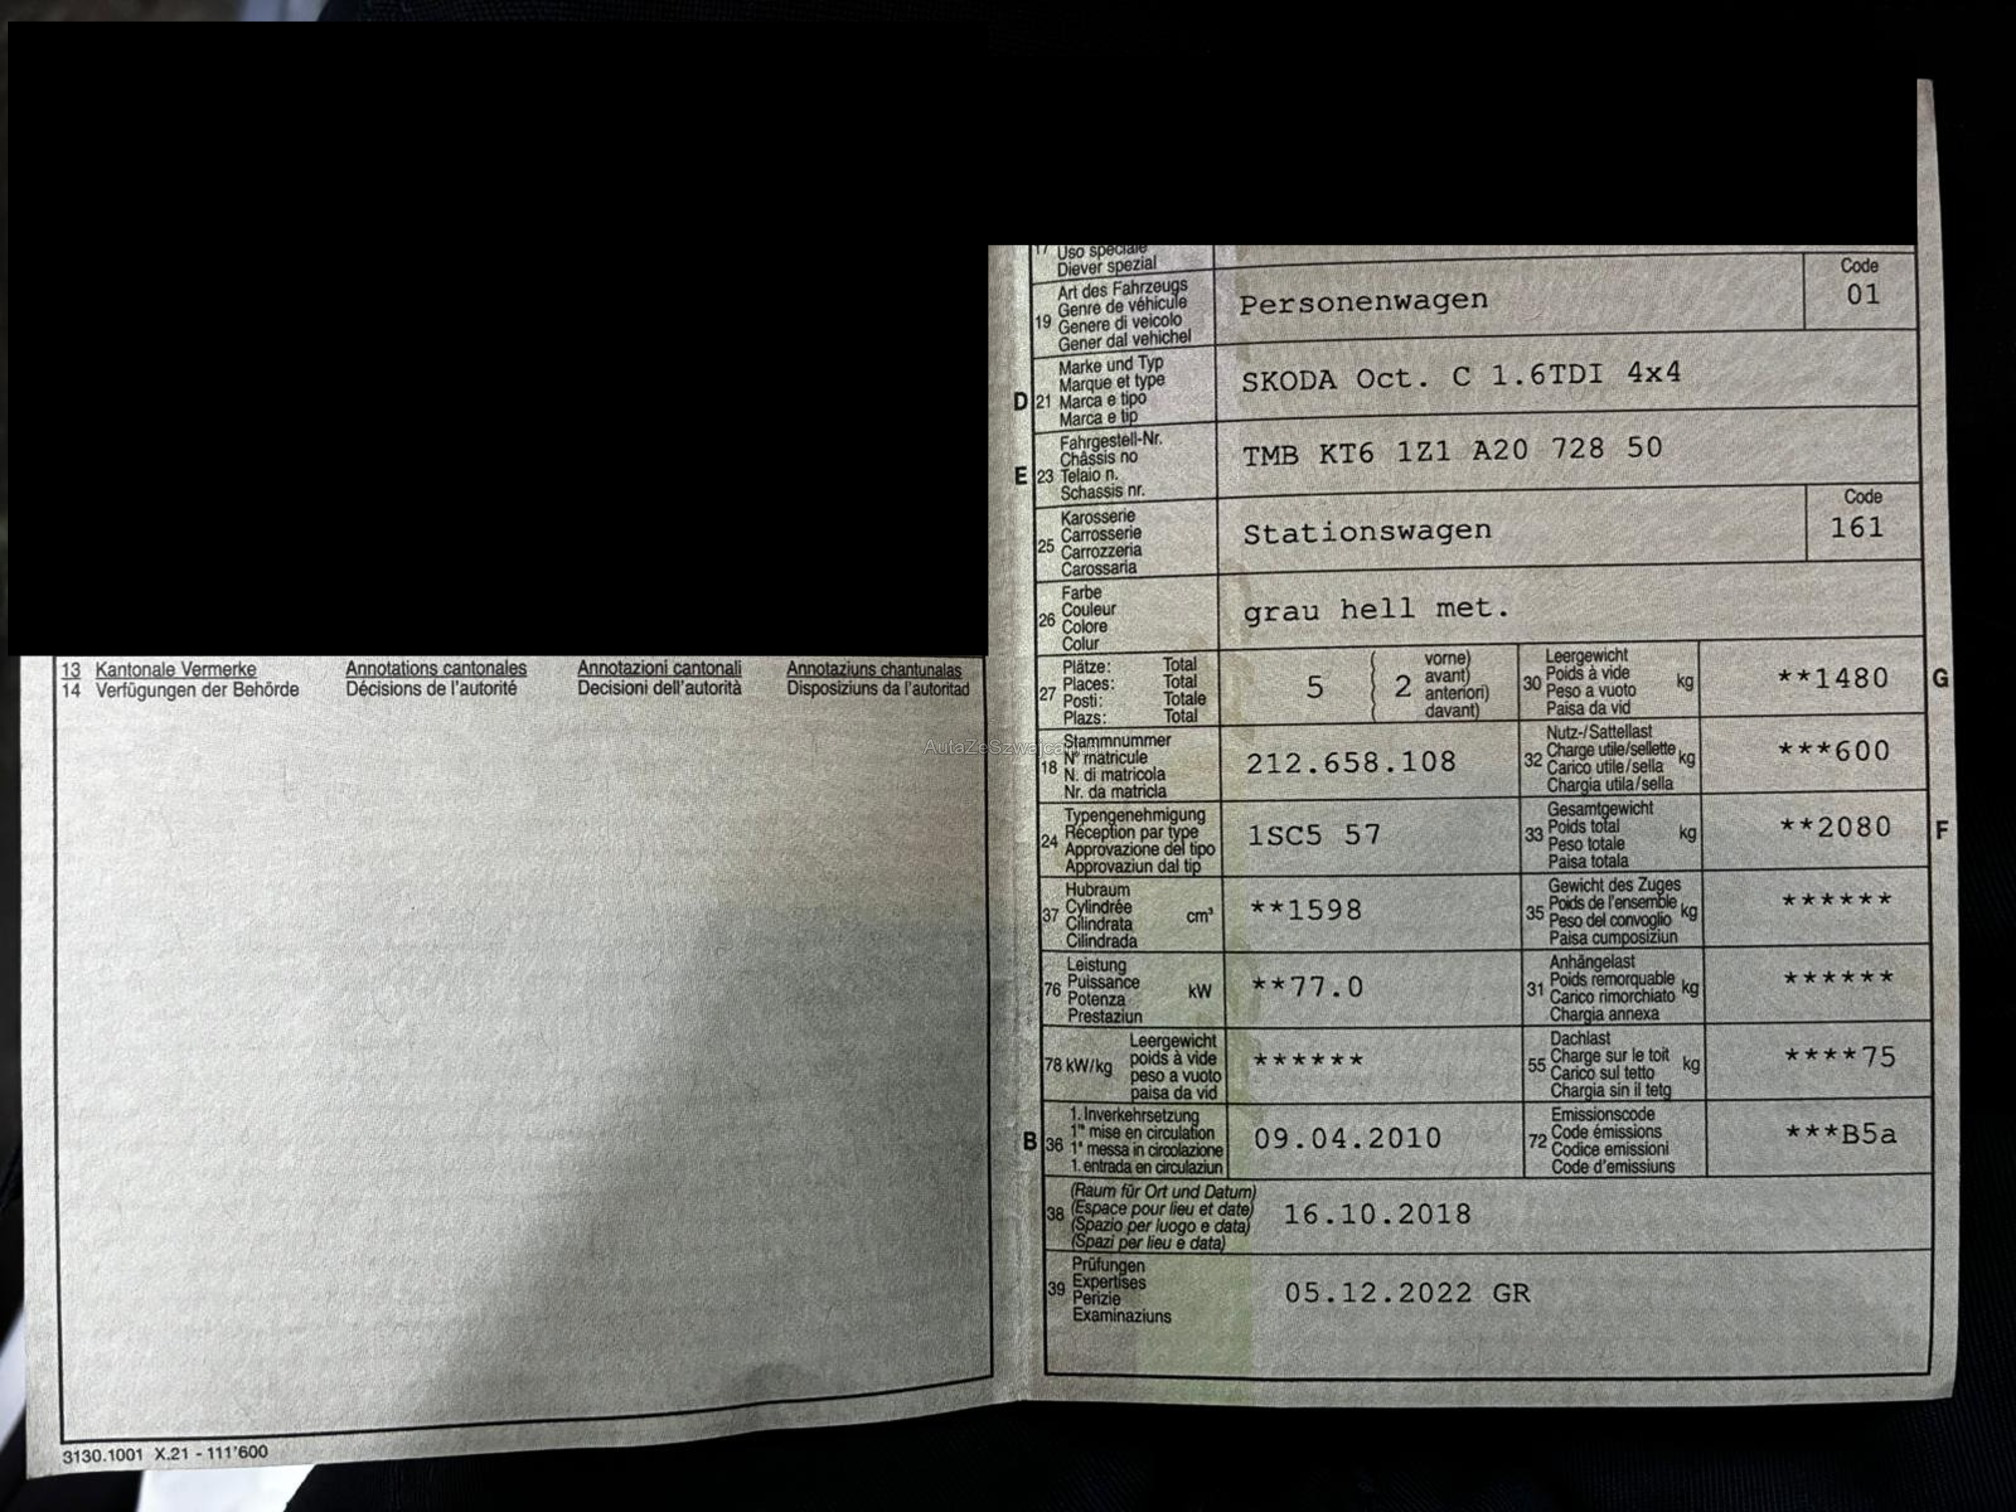 13 Kantonale Vermerke Annotations cantonales Annotazioni cantonali Annotaziuns chantunalas
14 Verfügungen der Behörde Décisions de l'autorité Decisioni dell'autorità Disposiziuns da l'autoritad
3130.1001 X.21 - 111'600
17 Uso speciale
Diever spezial
19 Art des Fahrzeugs
Genre de véhicule
Genere di veicolo
Gener dal vehichel
Personenwagen
Code
01
D 21 Marke und Typ
Marque et type
Marca e tipo
Marca e tip
SKODA Oct. C 1.6TDI 4x4
E 23 Fahrgestell-Nr.
Châssis no
Telaio n.
Schassis nr.
TMB KT6 1Z1 A20 728 50
25 Karosserie
Carrosserie
Carrozzeria
Carossaria
Stationswagen
Code
161
26 Farbe
Couleur
Colore
Colur
grau hell met.
27 Plätze: Total
Places: Total
Posti: Totale
Plazs: Total
5 ( 2 vorne)
avant)
anteriori)
davant)
30 Leergewicht
Poids à vide
Peso a vuoto
Paisa da vid
kg
**1480
G
18 Stammnummer
N° matricule
N. di matricola
Nr. da matricla
212.658.108
32 Nutz-/Sattellast
Charge utile/sellette
Carico utile/sella
Chargia utila/sella
kg
***600
24 Typengenehmigung
Réception par type
Approvazione del tipo
Approvaziun dal tip
1SC5 57
33 Gesamtgewicht
Poids total
Peso totale
Paisa totala
kg
**2080
F
37 Hubraum
Cylindrée
Cilindrata
Cilindrada
cm³
**1598
35 Gewicht des Zuges
Poids de l'ensemble
Peso del convoglio
Paisa cumposiziun
kg
******
76 Leistung
Puissance
Potenza
Prestaziun
kW
**77.0
31 Anhängelast
Poids remorquable
Carico rimorchiato
Chargia annexa
kg
******
78 kW/kg Leergewicht
poids à vide
peso a vuoto
paisa da vid
******
55 Dachlast
Charge sur le toit
Carico sul tetto
Chargia sin il tetg
kg
****75
B 36 1. Inverkehrsetzung
1re mise en circulation
1a messa in circolazione
1. entrada en circulaziun
09.04.2010
72 Emissionscode
Code émissions
Codice emissioni
Code d'emissiuns
***B5a
38 (Raum für Ort und Datum)
(Espace pour lieu et date)
(Spazio per luogo e data)
(Spazi per lieu e data)
16.10.2018
39 Prüfungen
Expertises
Perizie
Examinaziuns
05.12.2022 GR